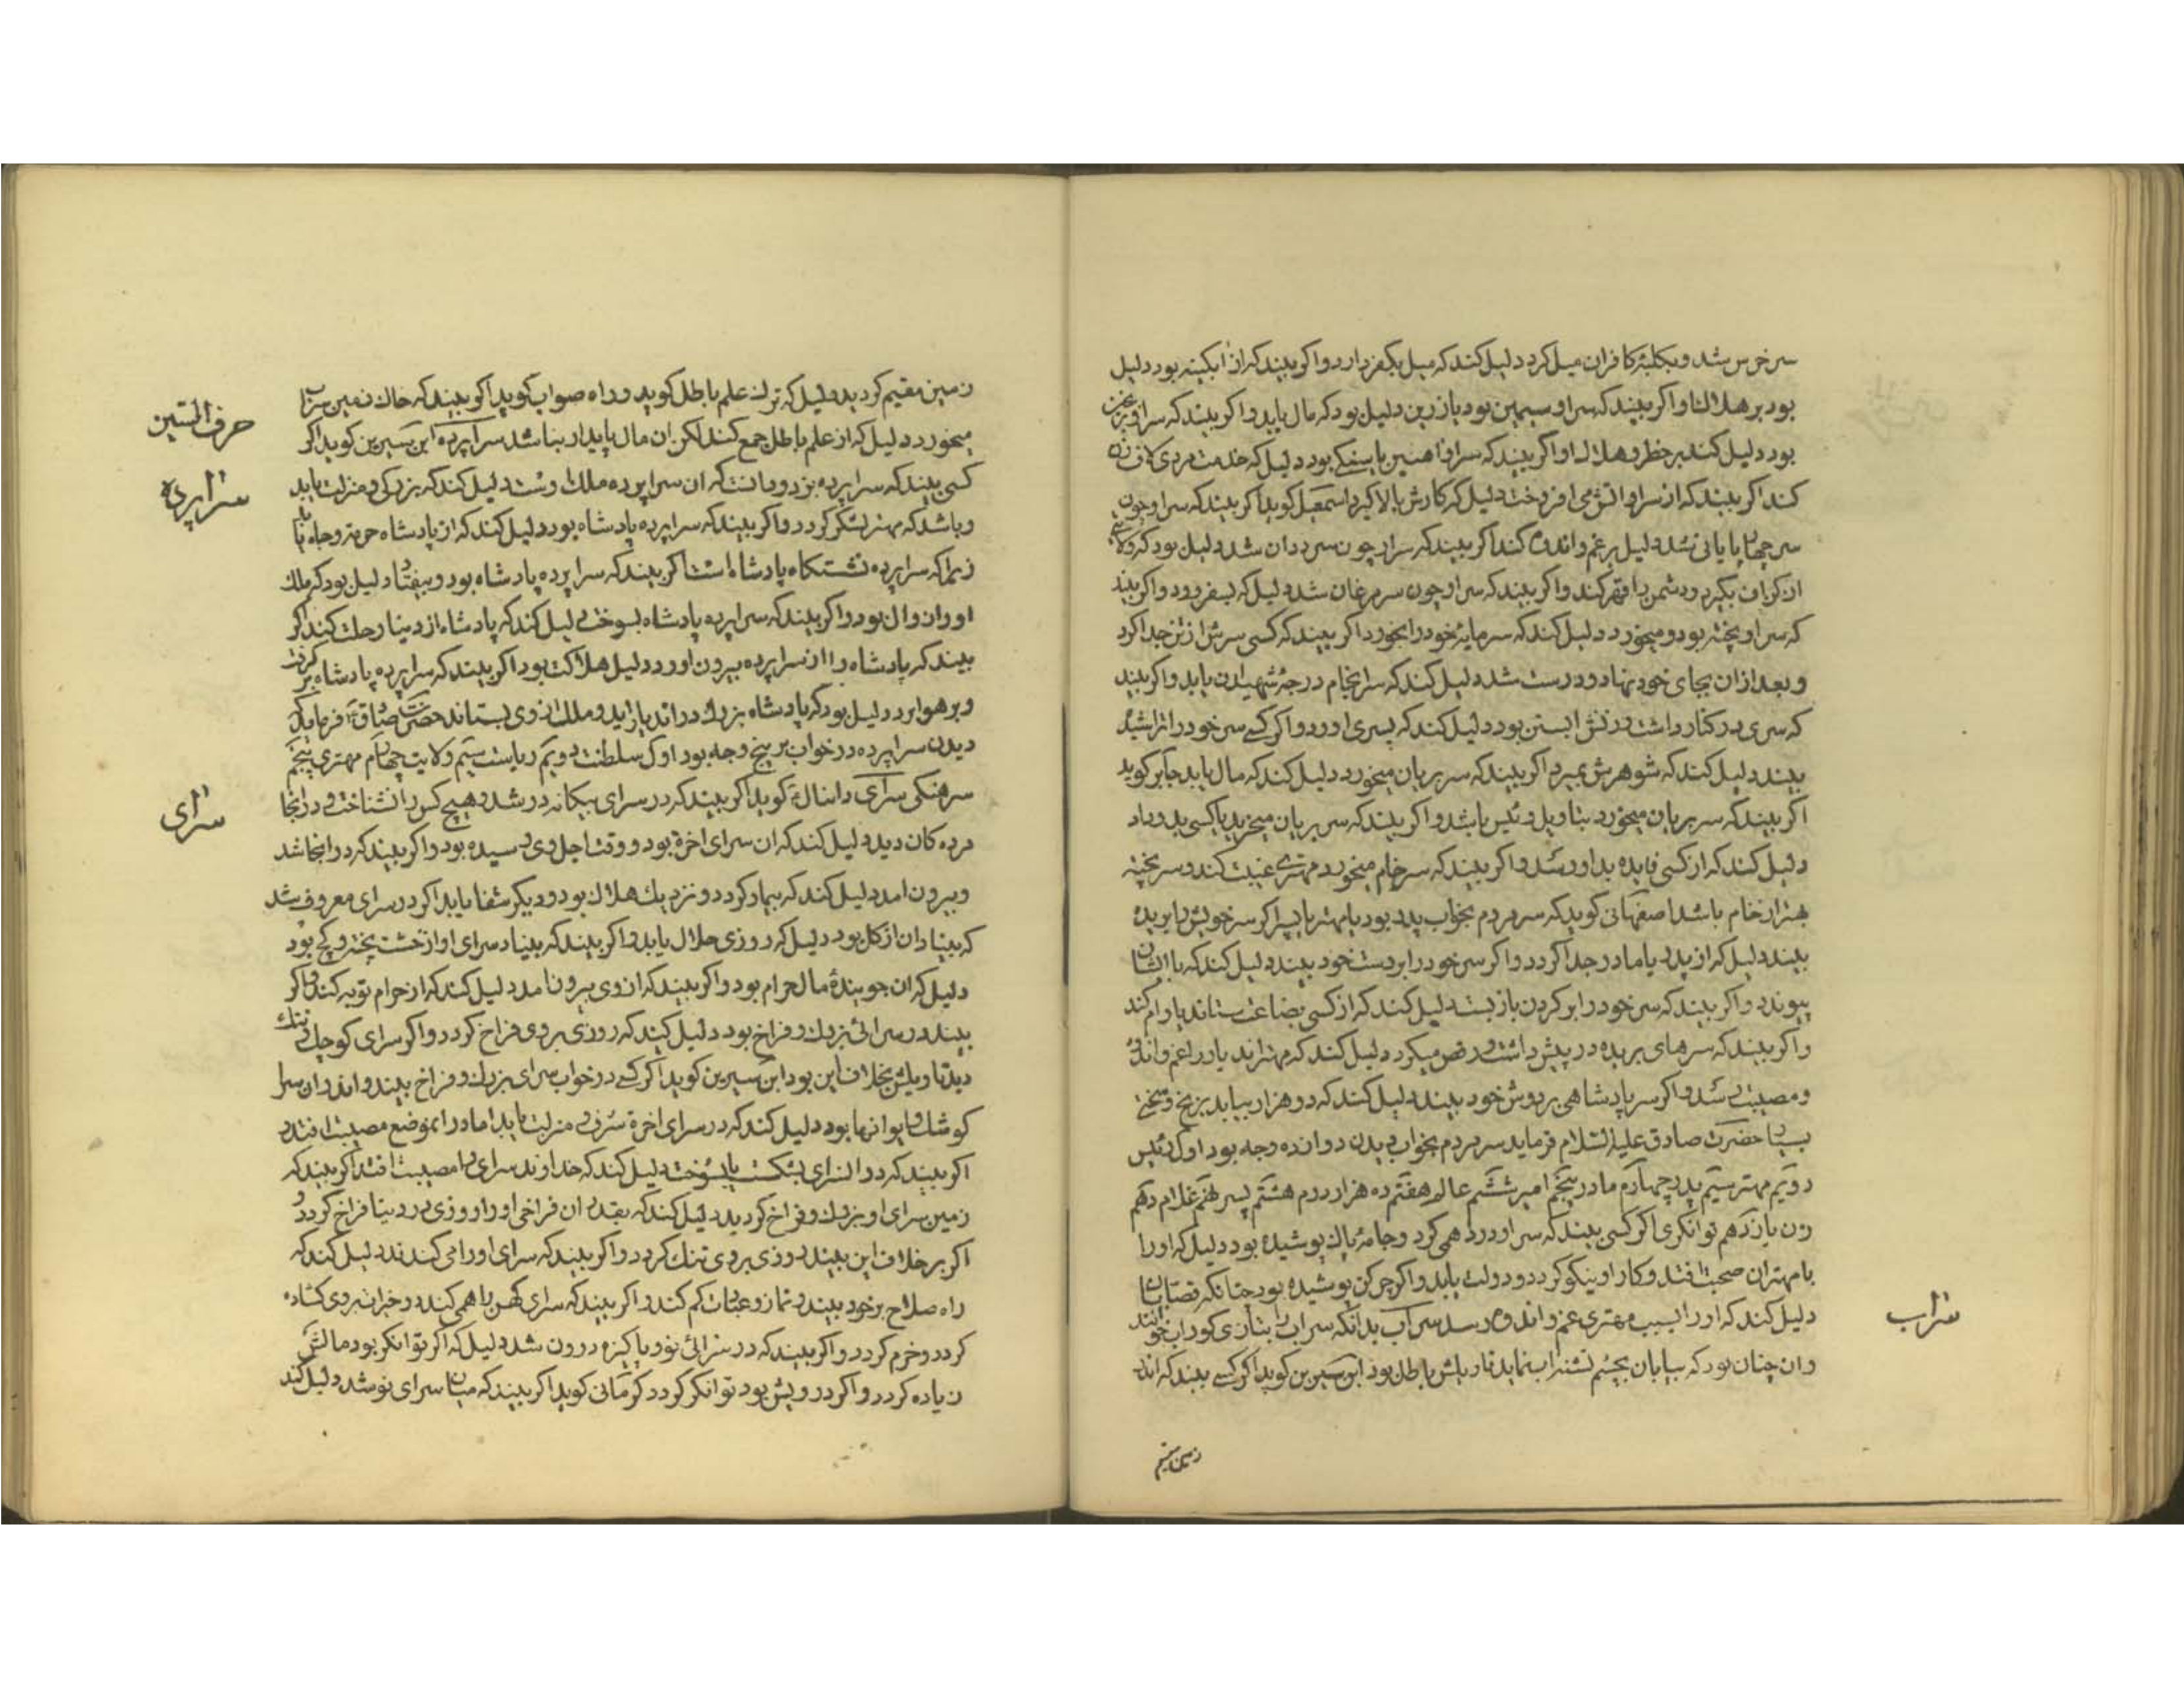 سر خرس شد و بکلبهٔ کافران میل کرد دلیل کند که میل بکفر دارد و اکر بیند که از ابکینه بود دلیل
بود بر هلاک او اکر بیند که سر او سیمین بود یا زرین دلیل بود که مال یابد و اکر بیند که سر او
بود دلیل کند بر خطر و هلاک او اکر بیند که سر او اهنین یا سنکی بود دلیل که خدمت مردی
کند اکر بیند که از سر او اتش می افروخت دلیل که کارش بالا کیرد اسمعیل کوید اکر بیند که سر او چون
سر چهارپایانی شد دلیل بر غم و اندوه کند اکر بیند که سر او چون سر ددان شد دلیل بود که
بکیرد و دشمن را قهر کند و اکر بیند که سر او چون سر مرغان شد دلیل که بسفر رود و اکر بیند
که سر او پخته بود و میخورد دلیل کند که سرمایهٔ خود را بخورد اکر بیند که کسی سرش از تن جدا کرد
و بعد از ان بجای خود نهاد و درست شد دلیل کند که سرانجام درجهٔ شهیدان یابد و اکر بیند
که سری در کنار داشت و زنش ابستن بود دلیل کند که پسری اورد و اکر کسی سر خود را تراشیده
بیند دلیل کند که شوهرش بمیرد اکر بیند که سر بریان میخورد دلیل کند که مال یابد جابر کوید
اکر بیند که سر بریان میخورد بتاویل رئیس باشد و اکر بیند که سر بریان میخرید یا کسی بدو داد
دلیل کند که از کسی فایده بدو رسد و اکر بیند که سر خام میخورد مهتری غیبت کند و سر پخته
بهتر از خام باشد اصفهانی کوید که سر مردم بخواب پدر بود یا مهتر یا پسر اکر سر خویش را بریده
بیند دلیل که از پدر یا مادر جدا کردد و اکر سر خود را بر دست خود بیند دلیل کند که با ایشان
پیوندد و اکر بیند که سر خود را بر کردن باز بست دلیل کند که از کسی بضاعت ستاند یا وام کند
و اکر بیند که سرهای بریده در پیش داشت و رقص میکرد دلیل کند که مهتران دیار را غم و اندوه
و مصیبت رسد و اکر سر پادشاهی بر دوش خود بیند دلیل کند که ده هزار بیابد برنج و سختی
بسیار حضرت صادق علیه السلام فرماید سر مردم بخواب دیدن دوازده وجه بود اول رئیس
دویم مهتر سیم پدر چهارم مادر پنجم امیر ششم عالم هفتم ده هزار درم هشتم پسر نهم غلام دهم
زن یازدهم توانکری اکر کسی بیند که سر او درد همی کرد و جامهٔ پاک پوشیده بود دلیل که او را
با مهتران صحبت افتد و کار او نیکو کردد و دولت یابد و اکر چرکن پوشیده بود چنانکه قصابان
دلیل کند که او را بسبب مهتری غم و اندوه رسد سراب بدانکه سراب را بتازی کوراب خوانند
و ان چنان بود که بیابان بچشم تشنه اب نماید تاویلش باطل بود ابن سیرین کوید اکر کسی بیند که اندر
سراب
زمین مقیم
زمین مقیم کردید دلیل که ترک علم باطل کوید و راه صواب کوید اکر بیند که خاک زمین سراب
میخورد دلیل که از علم باطل جمع کند لکن ان مال پایدار نباشد سراپرده ابن سیرین کوید اکر
کسی بیند که سراپرده بزد و دانست که ان سراپرده ملک اوست دلیل کند که بزرکی و منزلت یابد
و باشد که مهتر لشکر کردد و اکر بیند که سراپرده پادشاه بود دلیل کند که از پادشاه حرمت و جاه یابد
زیرا که سراپرده نشستکاه پادشاه است اکر بیند که سراپرده پادشاه بود و بیفتاد دلیل بود که ملک
او را زوال بود و اکر بیند که سراپرده پادشاه بسوخت دلیل کند که پادشاه از دنیا رحلت کند اکر
بیند که پادشاه را از سراپرده بیرون اورد دلیل هلاکت بود اکر بیند که سراپرده پادشاه بر کرفت
و بر هوا برد دلیل بود که پادشاه بزرک در ان دیار اید و ملک از وی بستاند حضرت صادق فرماید که
دیدن سراپرده در خواب بر پنج وجه بود اول سلطنت دویم ریاست سیم ولایت چهارم مهتری پنجم
سرهنکی سرای دانیال کوید اکر بیند که در سرای بیکانه در شد و هیچ کس را نشناخت و در انجا
مرده کان دید دلیل کند که ان سرای اخرة بود و وقت اجل وی رسیده بود و اکر بیند که در انجا شد
و بیرون امد دلیل کند که بیمار کردد و نزدیک هلاک بود و دیکر شفا یابد اکر در سرای معروف شد
که بنیاد ان از کل بود دلیل که روزی حلال یابد و اکر بیند که بنیاد سرای او از خشت پخته و کچ بود
دلیل که ان جویندهٔ مال حرام بود و اکر بیند که از وی بیرون امد دلیل کند که از حرام توبه کند و اکر
بیند در سرائی بزرک و فراخ بود دلیل کند که روزی بر وی فراخ کردد و اکر سرای کوچک و تنک
دید تاویلش بخلاف این بود ابن سیرین کوید اکر کسی در خواب سرای بزرک و فراخ بیند و اندر ان سرا
کوشک و ایوانها بود دلیل کند که در سرای اخرة شرف و منزلت یابد اما در ان موضع مصیبت افتد
اکر بیند که در ان سرای بشکست یا بسوخت دلیل کند که خداوند سرای را مصیبت افتد اکر بیند که
زمین سرای او بزرک و فراخ کردید دلیل کند که بقدر ان فراخی او را روزی در دنیا فراخ کردد و
اکر بر خلاف این بیند روزی بر وی تنک کردد و اکر بیند که سرای او را می کندند دلیل کند که
راه صلاح بر خود ببیند و نماز و عبادت کم کند و اکر بیند که سرای کهن را همی کند در خیرات بر وی کشاده
کردد و خرم کردد و اکر بیند که در سرائی نو و پاکیزه درون شد دلیل که اکر توانکر بود مالش
زیاده کردد و اکر درویش بود توانکر کردد کرمانی کوید اکر بیند که میان سرای نو شد دلیل کند
حرف السین
سراپرده
سرای